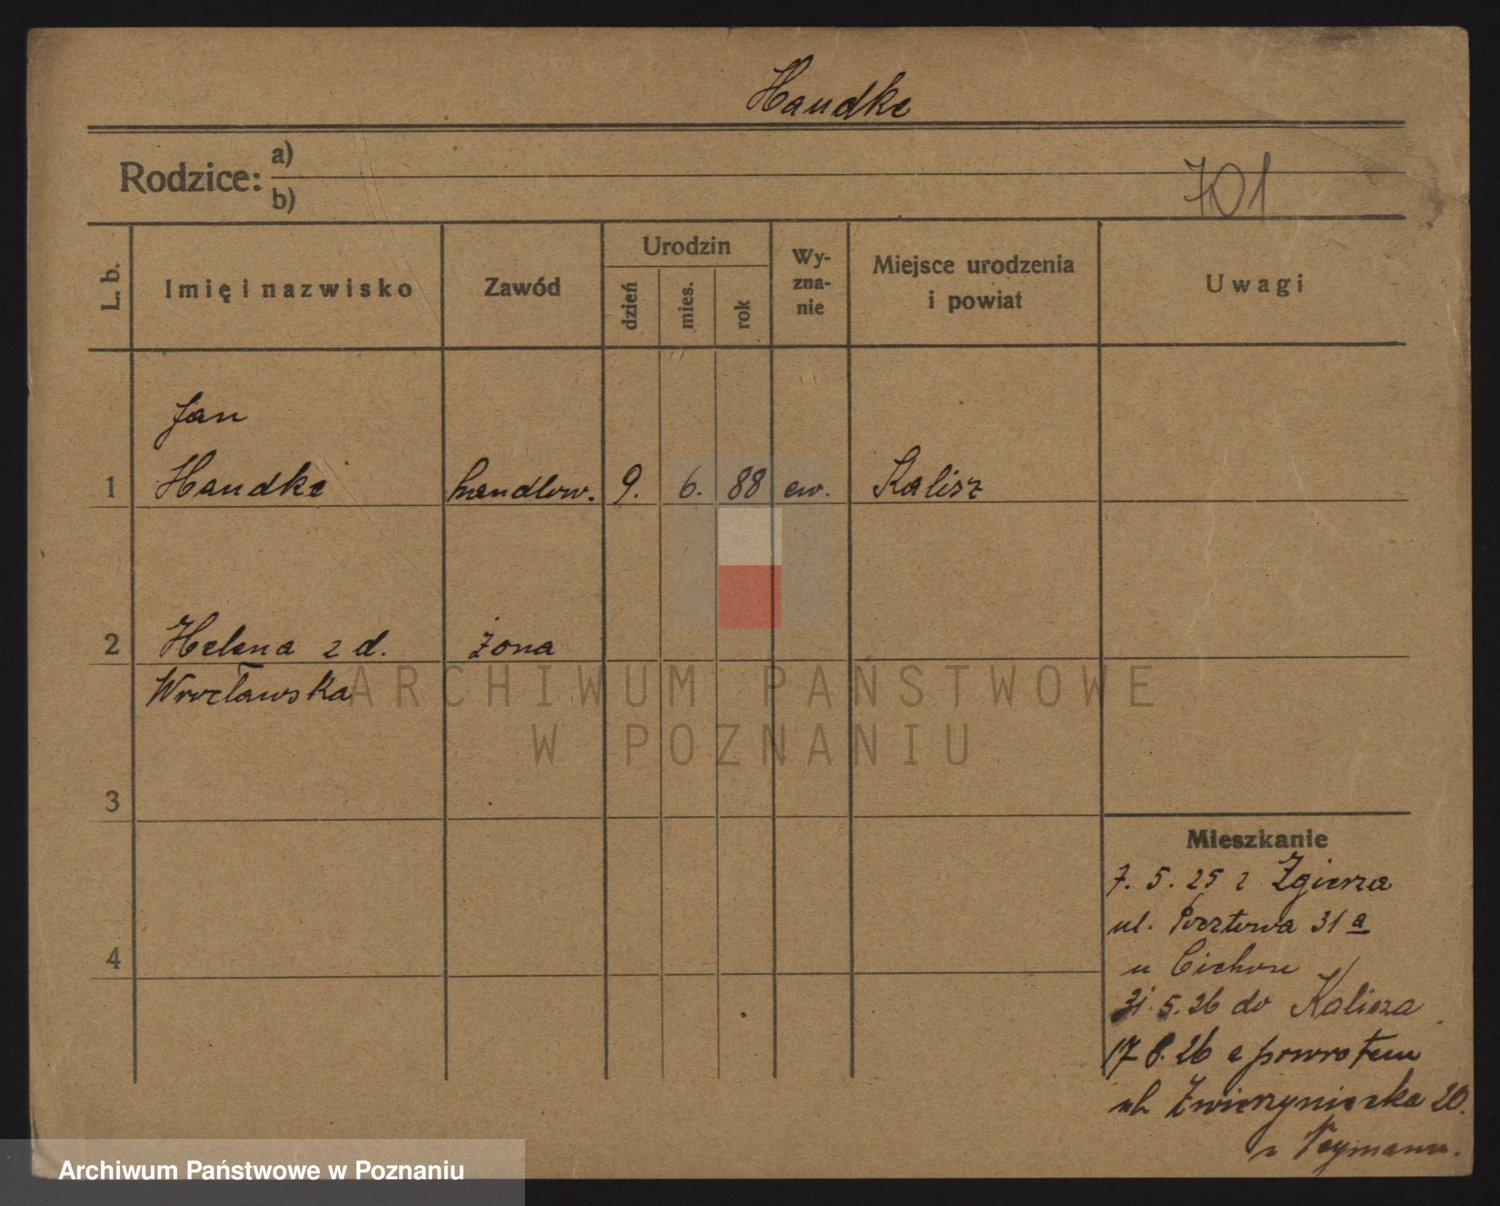 Handke
Rodzice: a)
b)
701
L. b.
Imię i nazwisko
Zawód
Urodzin
dzień
mies.
rok
Wy-
zna-
nie
Miejsce urodzenia
i powiat
Uwagi
Jan
1 Handke handlow. 9. 6. 88 ew. Kalisz
2 Helena z d. żona
Wrocławska
3
4
Mieszkanie
7. 5. 25 z Zgierza
ul. Pocztowa 31 a
u
31. 5. 26 do Kalisza
17 8. 26 z powrotem
ul. Zwierzyniecka 20.
ARCHIWUM PAŃSTWOWE
W POZNANIU
Archiwum Państwowe w Poznaniu